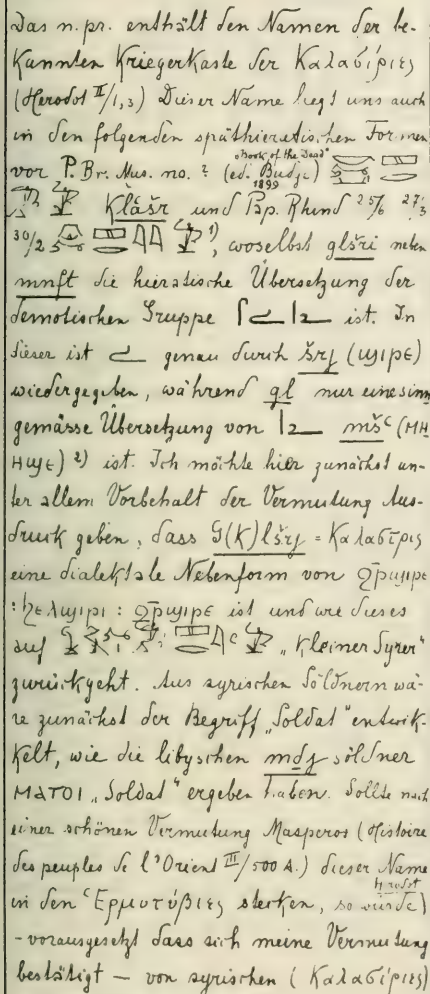 Das n. pr. enthält den Namen der be-
kannten Kriegerkaste der Καλασίριες
(Herodot II/1,3) Dieser Name liegt uns auch
in den folgenden späthieratischen Formen
vor P. Br. Mus. no. ? (ed. Budge "Book of the Dead" 1899)
Klåšr und Pap. Rhind 25/6 27/3
30/2 1), woselbst glšri neben
mnft die hieratische Übersetzung der
demotischen Gruppe ist. In
dieser ist genau durch šrj (ϣⲓⲣⲉ)
wiedergegeben, während gl nur eine sinn
gemässe Übersetzung von mšꜥ (ⲙⲏ
ⲏϣⲉ) 2) ist. Ich möchte hier zunächst un-
ter allem Vorbehalt der Vermutung Aus-
druck geben, dass G(K)lšrj = Καλασῖρις
eine dialektale Nebenform von ϩⲣ̄ϣⲓⲣⲉ
: ϧⲉⲗϣⲓⲣⲓ : ϩⲣ̄ϣⲓⲣⲉ ist und wie dieses
auf „Kleiner Syrer"
zurückgeht. Aus syrischen Söldnern wä-
re zunächst der Begriff „Soldat" entwik-
kelt, wie die libyschen mdj söldner
ⲙⲁⲧⲟⲓ „Soldat" ergeben haben. Sollte nach
einer schönen Vermutung Masperos (Histoire
des peuples de l'Orient III/500 A.) dieser Name
in den Ἑρμοτύβιες stecken, so würde Herodot)
- vorausgesetzt dass sich meine Vermutung
bestätigt — von syrischen (Καλασίριες)